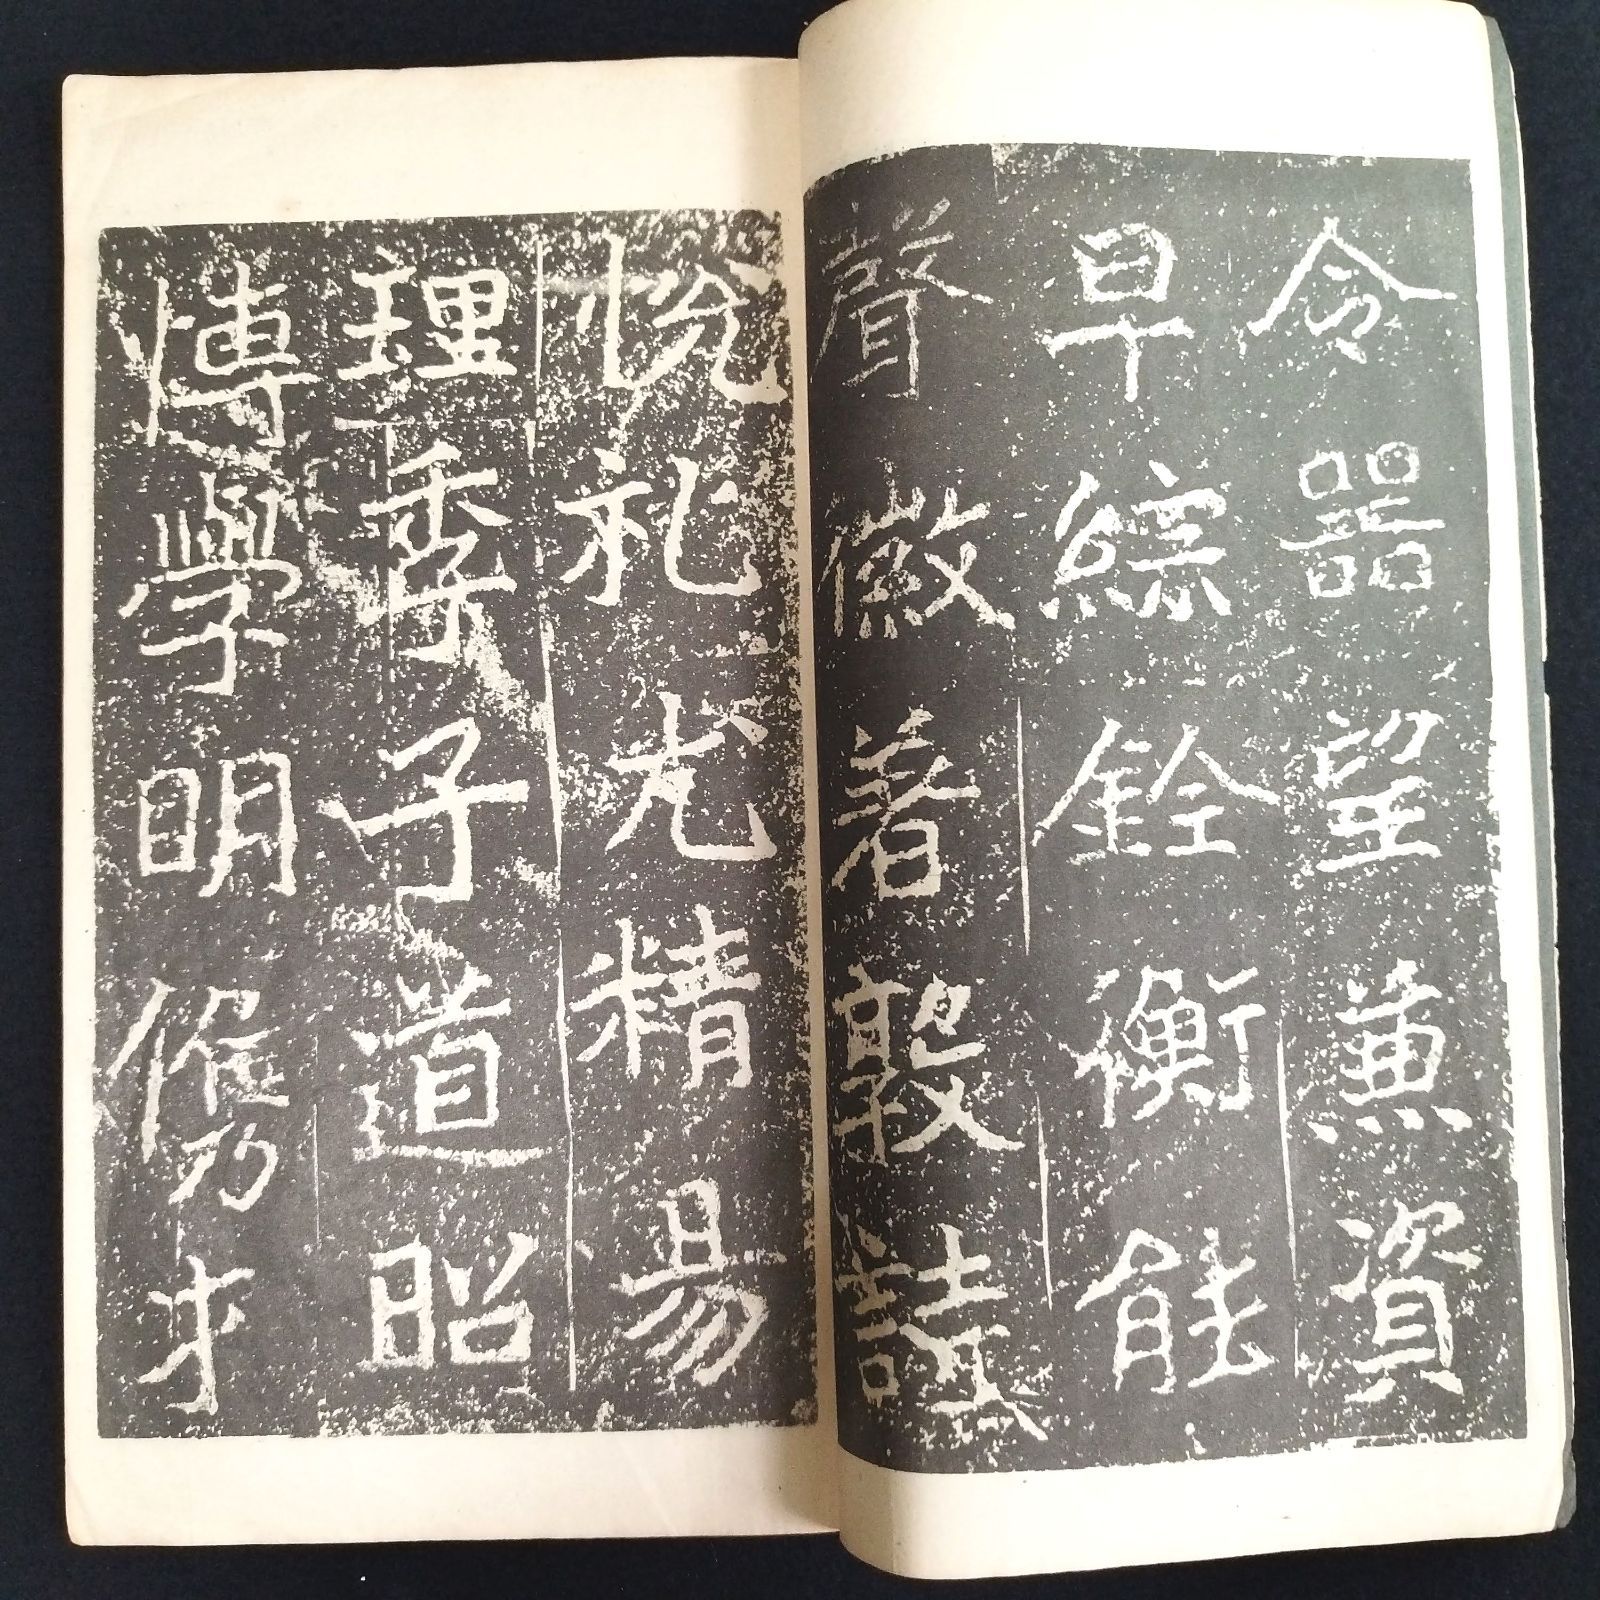 令器望兼資
早綜銓衡能
聲徽著敦詩
悅礼尤精易
理季子道昭
愽學明儁才